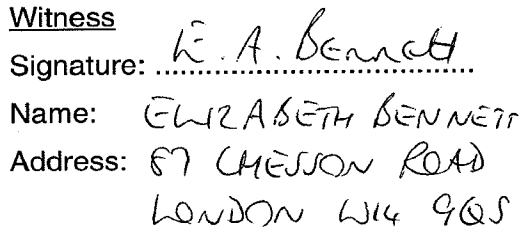 Witness
Signature: E. A. Bennett
Name: ELIZABETH BENNETT
Address: 87 CHESSON ROAD
LONDON W14 9QS